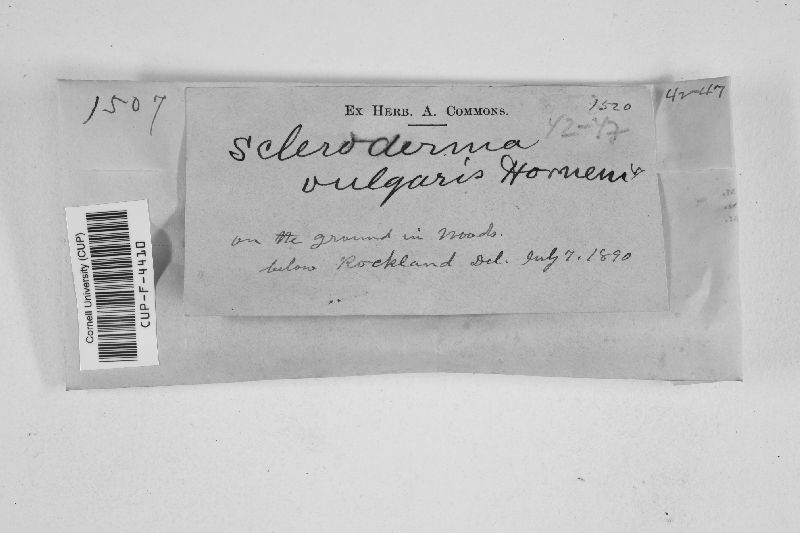 1507
Ex Herb. A. Commons.
1520
42-47
42-47
Scleroderma
vulgaris Hornem
on the ground in Woods.
below Rockland Del. July 7. 1890
Cornell University (CUP)
CUP-F-4410